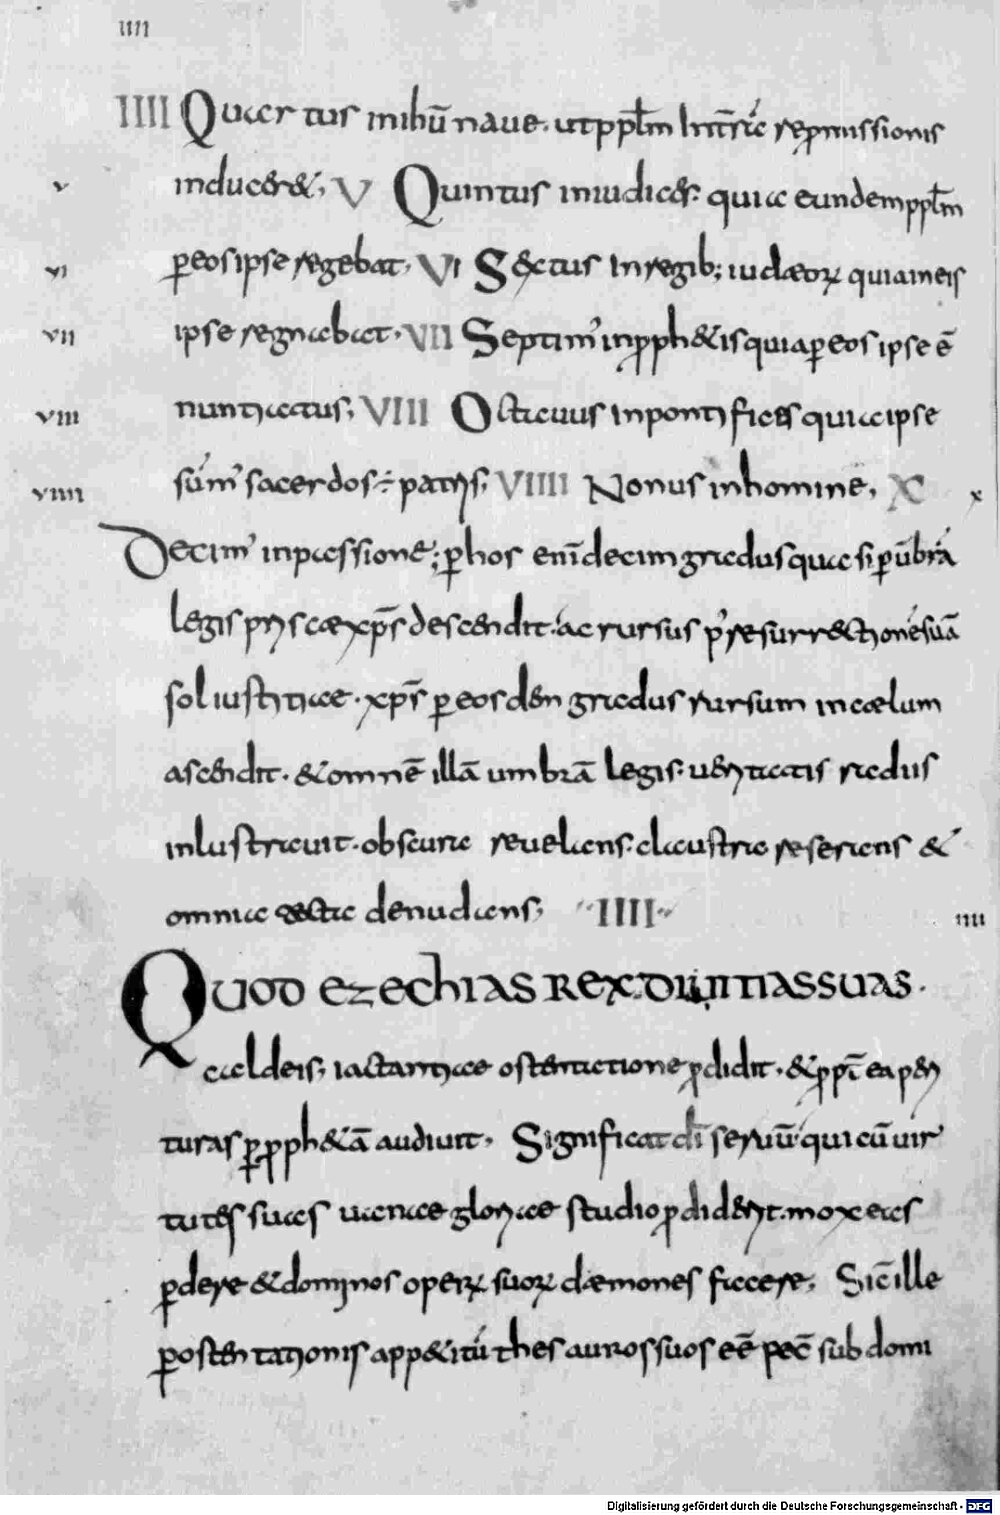 IIII
IIII Quartus in ihū naue. ut ppłm in trā repmissionis
v induceret; V Quintus in iudices. quia eundem ppłm
vi p eos ipse regebat, VI Sextus in regib; iudæorꝝ quia in eis
vii ipse regnabat. VII Septim' in pphetis quia p eos ipse ē
viii nuntiatus; VIII Octauus in pontifices quia ipse
viiii sūm' sacerdos ÷ patris; VIIII Nonus in homine, X x
Decim' in passione; p hos enī decim gradus quasi p ūbrā
legis priscæ xp̄s descendit. ac rursus p' resurrectionē suā
sol iustitiae. xp̄s p eosdem gradus rursum in cœlum
ascendit. & omnē illā umbrā legis. ueritatis radus
inlustrauit. obscura reuelans. claustra reserans &
omnia tecta denudans; IIII IIII
QUOD EZECHIAS REX DIUITIAS SUAS.
caldeis; iactantiae ostentatione pdidit. & ppt̄ ea pen
turas p pphetā audiuit. Significat dī seruū qui cū uir
tutes suas uanae gloriae studio pdiderit. mox eas
pdere & dominos operꝝ suorꝝ dæmones facere; Sic̄ ille
p ostentationis appetitū thesauros suos eē pec̄ sub domi
Digitalisierung gefördert durch die Deutsche Forschungsgemeinschaft - DFG